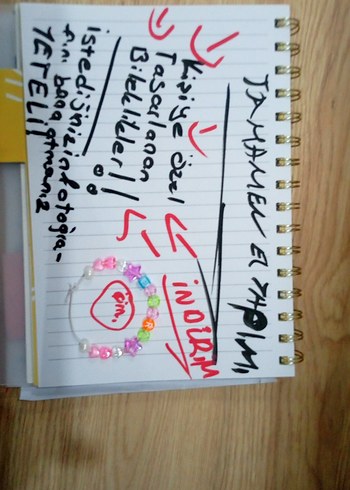 TAMAMEN EL YAPIMI
Kişiye Özel
Tasarlanan
Bileklikler!!
İNDİRİM
istediğiniz fotoğra-
fını bana atmanız
YETERLİ!